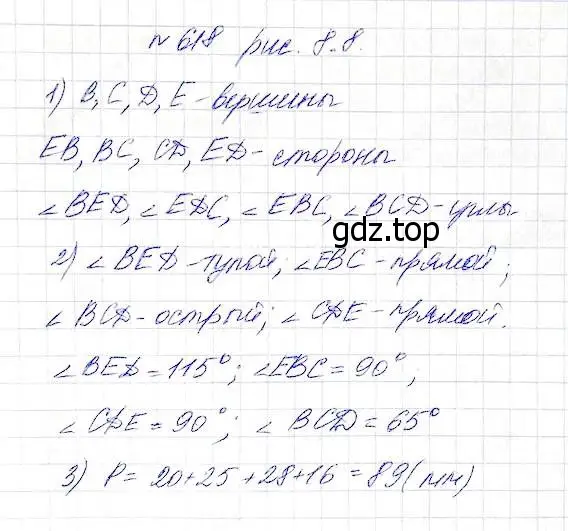 № 618 рис. 8.8.
1) B, C, D, E - вершины
EB, BC, CD, ED - стороны
∠BED, ∠EDC, ∠EBC, ∠BCD - углы
gdz.top
2) ∠BED - тупой; ∠EBC - прямой;
∠BCD - острый; ∠CDE - прямой.
∠BED = 115°; ∠EBC = 90°;
∠CDE = 90°; ∠BCD = 65°
3) P = 20+25+28+16 = 89 (мм)